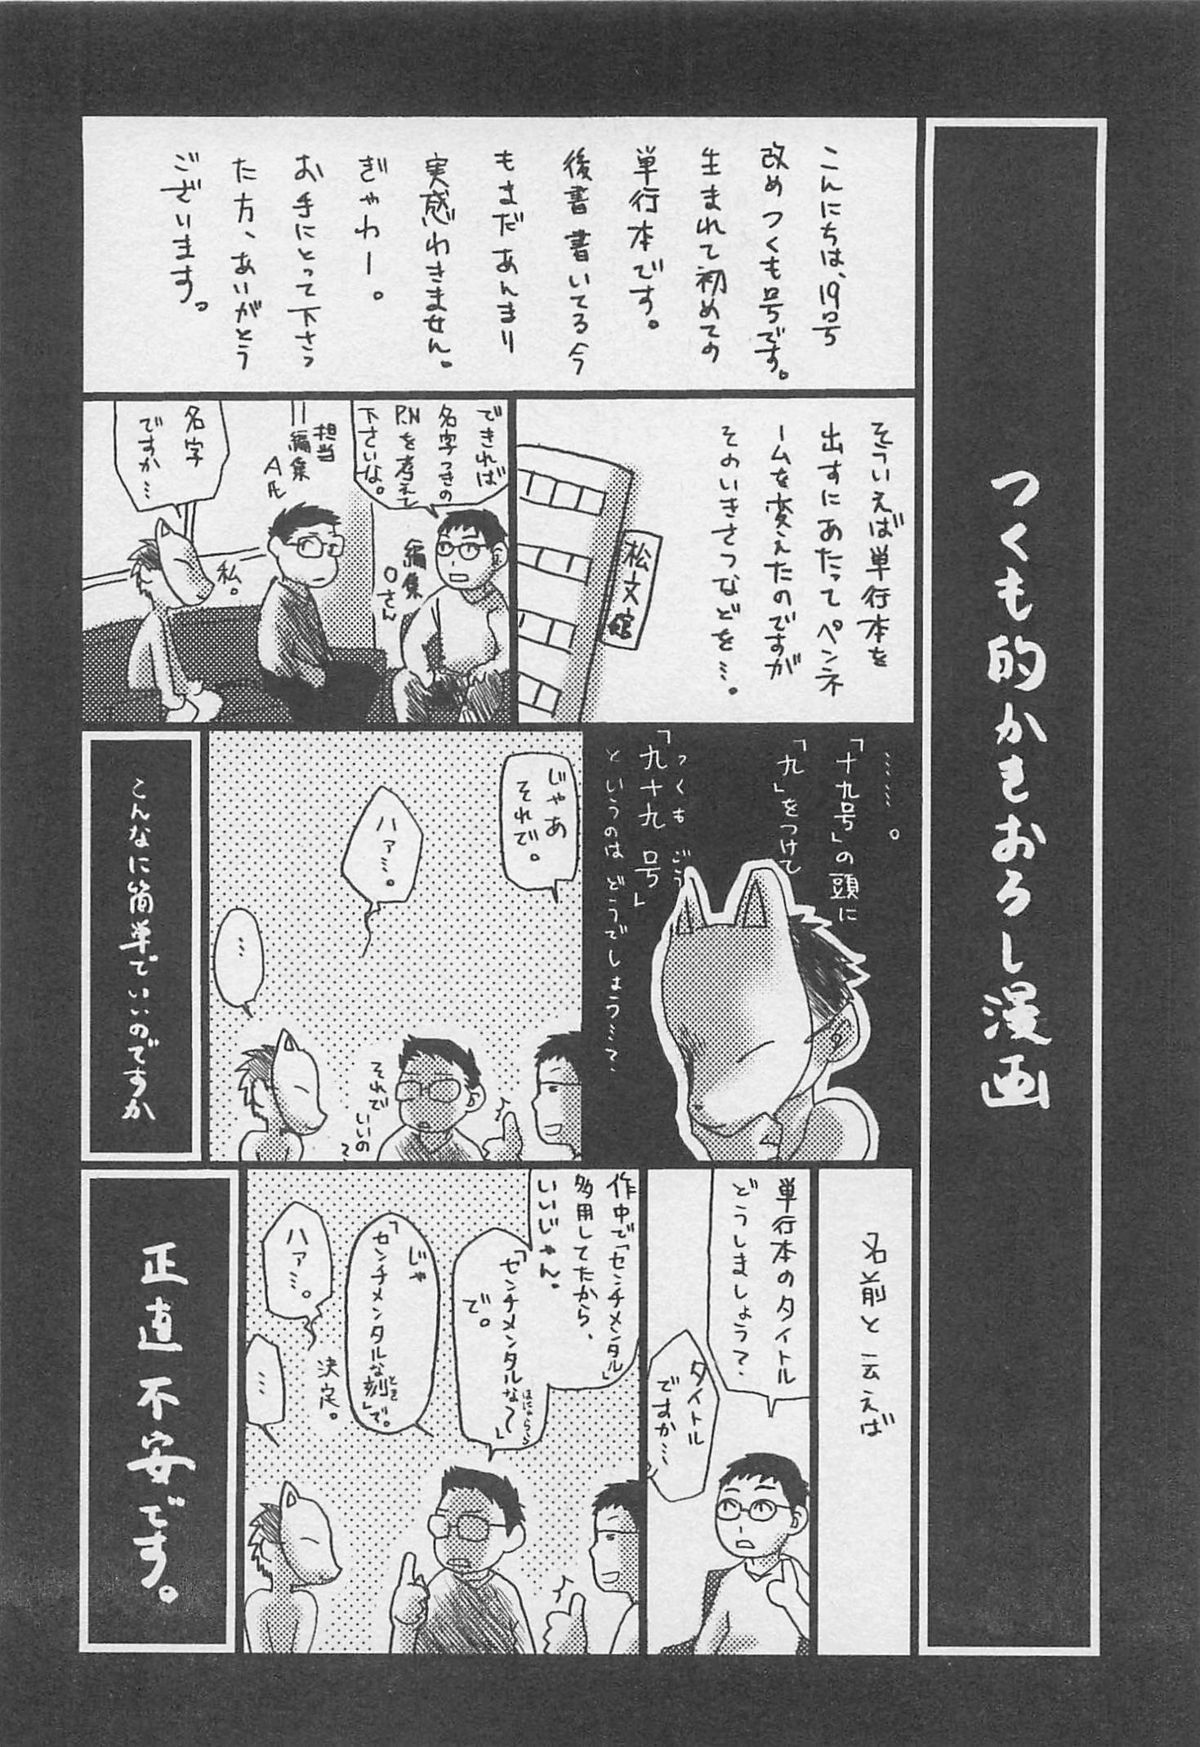 つくも的かきおろし漫画
こんにちは、19号
改めつくも号です。
生まれて初めての
単行本です。
後書書いてる今
もまだあんまり
実感わきません。
ぎゃわー。
お手にとって下さっ
た方、ありがとう
ございます。
そういえば単行本を
出すにあたってペンネ
ームを変えたのですが
そのいきさつなどを…。
松文館
できれば
名字つきの
P.Nを考えて
下さいな。
編集
Oさん
担当
編集
A氏
名字
ですか…
私。
……。
「十九号」の頭に
「九」をつけて
つくも ごう
「九十九 号」
というのはどうでしょう…?
じゃあ
それで。
ハァ…。
…
それで
いいの?
こんなに簡単でいいのですか
名前と云えば
単行本のタイトル
どうしましょう?
タイトル
ですか…
作中で「センチメンタル」
多用してたから、
いいじゃん。
「センチメンタルな〜」
ほにゃらら
で。
じゃ
「センチメンタルな刻」で。
とき
決定。
ハァ…。
…
正直不安です。